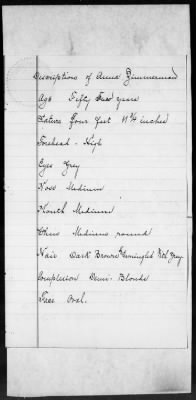 Descriptions of Anna Zimmerman
Age Fifty two years
Stature Four feet 11¾ inches
Forehead - High
Eyes Grey
Nose Medium
Mouth Medium
Chin Medium round
Hair Dark Brown & mingled with Grey
Complexion Demi-Blonde
Face Oval.